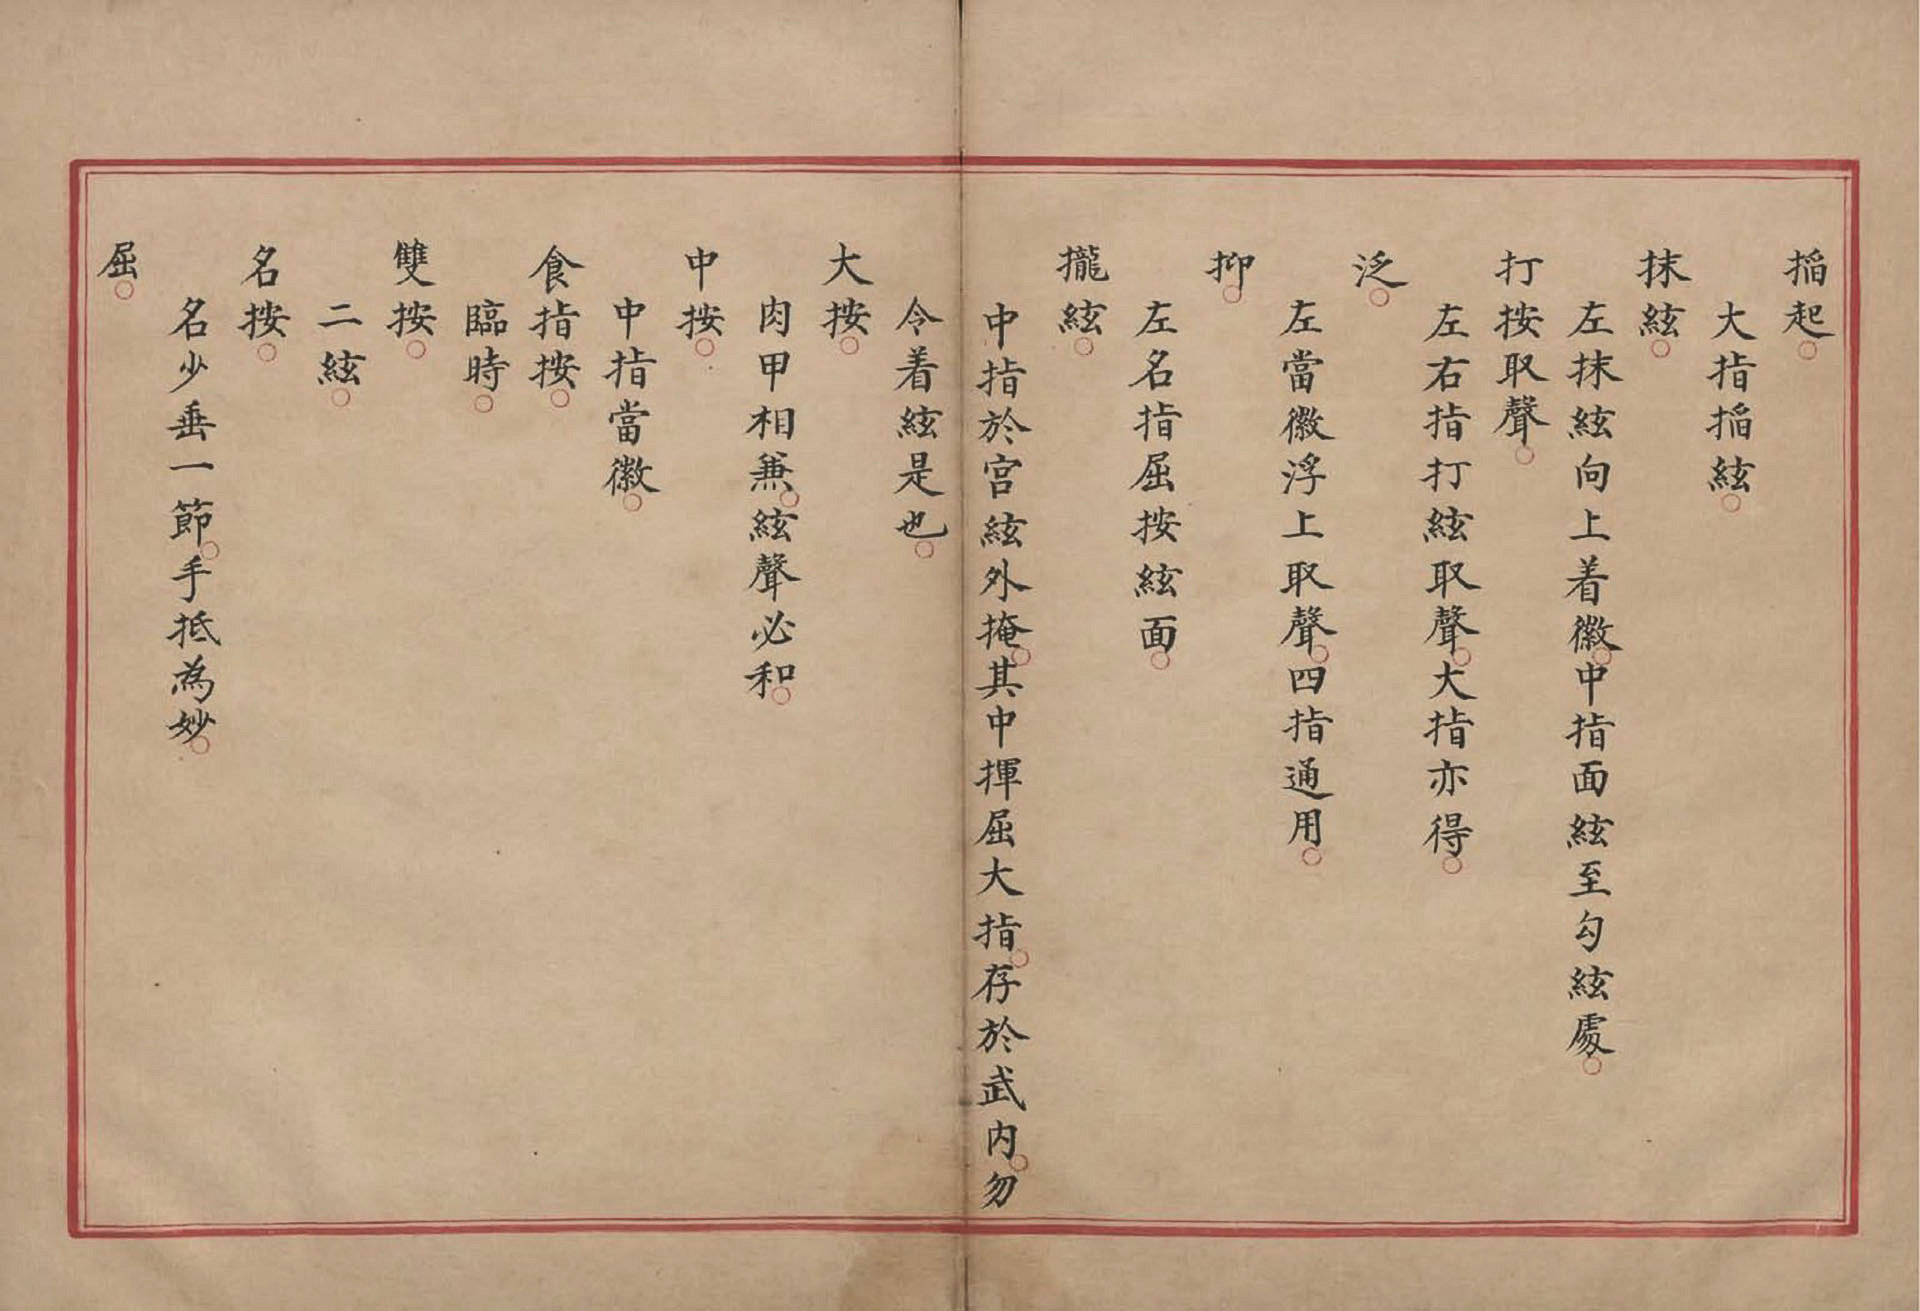 搯起。
大指搯絃。
抹絃。
左抹絃向上着徽。中指面絃至勾絃處。
打按取聲。
左右指打絃取聲。大指亦得。
泛。
左當徽浮上取聲。四指通用。
抑。
左名指屈按絃面。
攏絃。
中指於宮絃外掩。其中揮屈大指。存於武内。勿
令着絃是也。
大按。
肉甲相兼。絃聲必和。
中按。
中指當徽。
食指按。
臨時。
雙按。
二絃。
名按。
名少垂一節。手抵為妙。
屈。